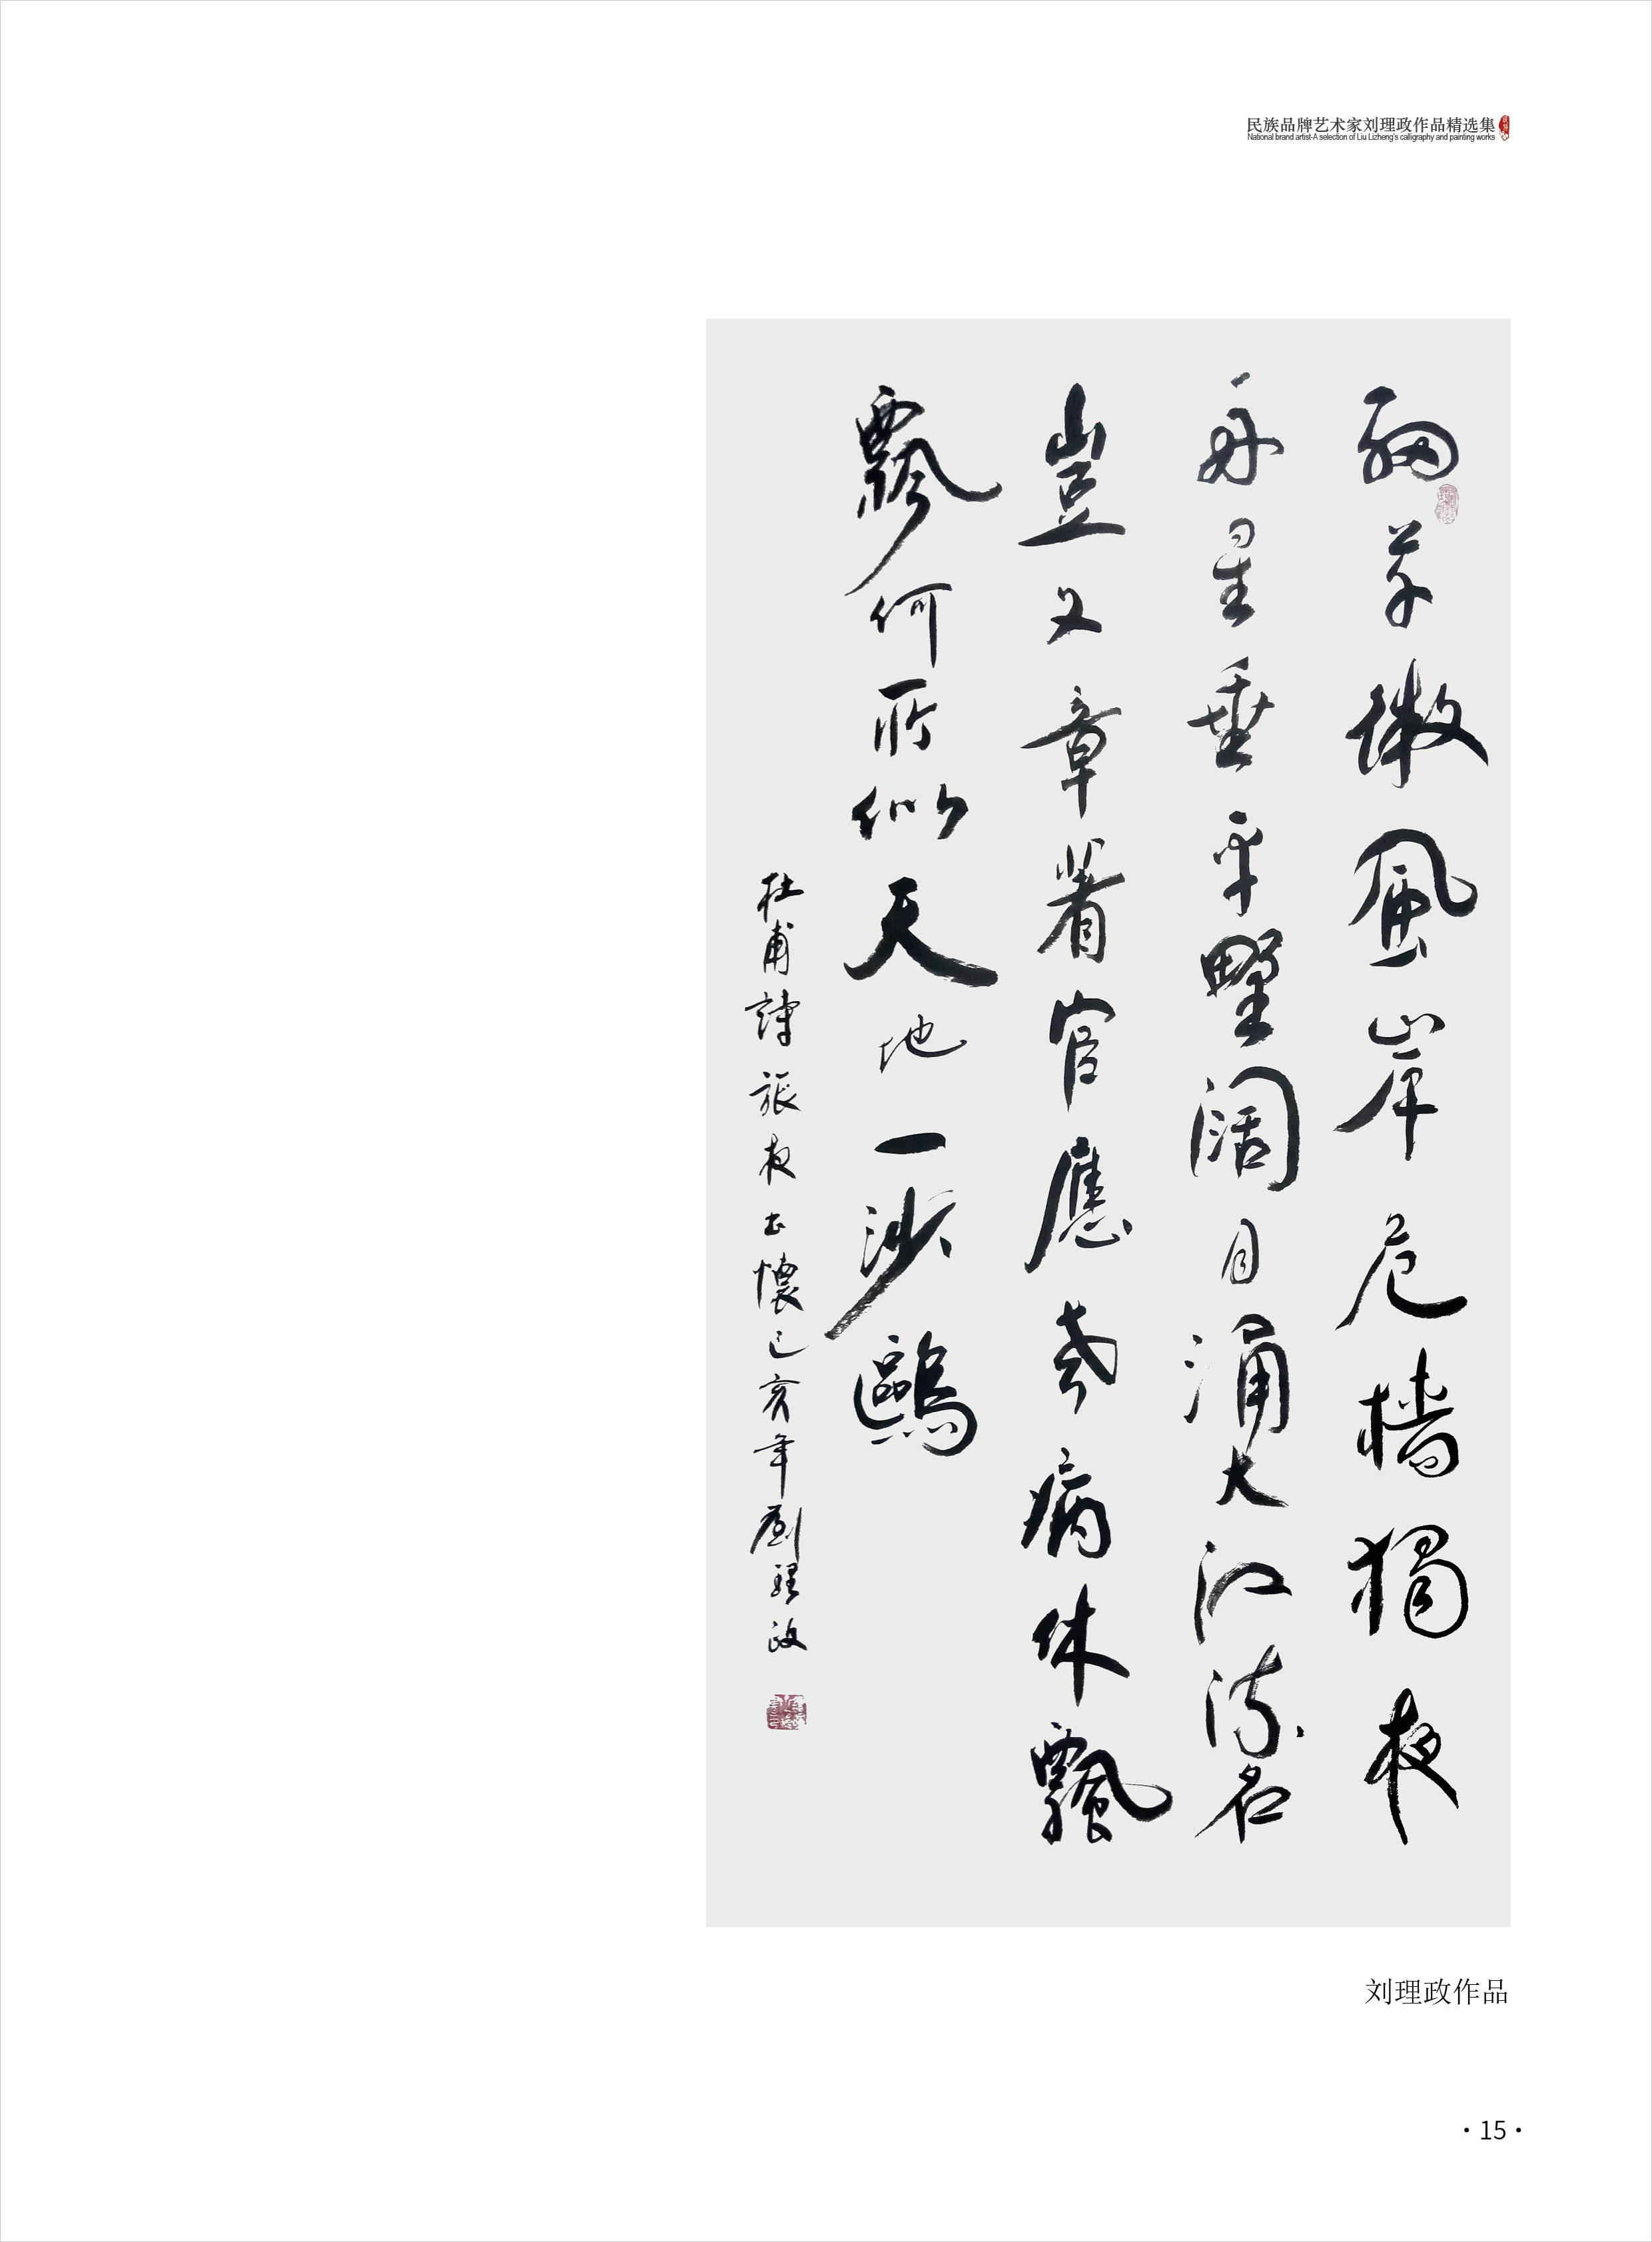 民族品牌艺术家刘理政作品精选集
National brand artist-A selection of Liu Lizheng's calligraphy and painting works
細草微風岸危檣獨夜
舟星垂平野闊月涌大江流名
豈文章著官應老病休飄
飄何所似天地一沙鷗
杜甫詩旅夜书懷己亥年劉理政
刘理政作品
·15·